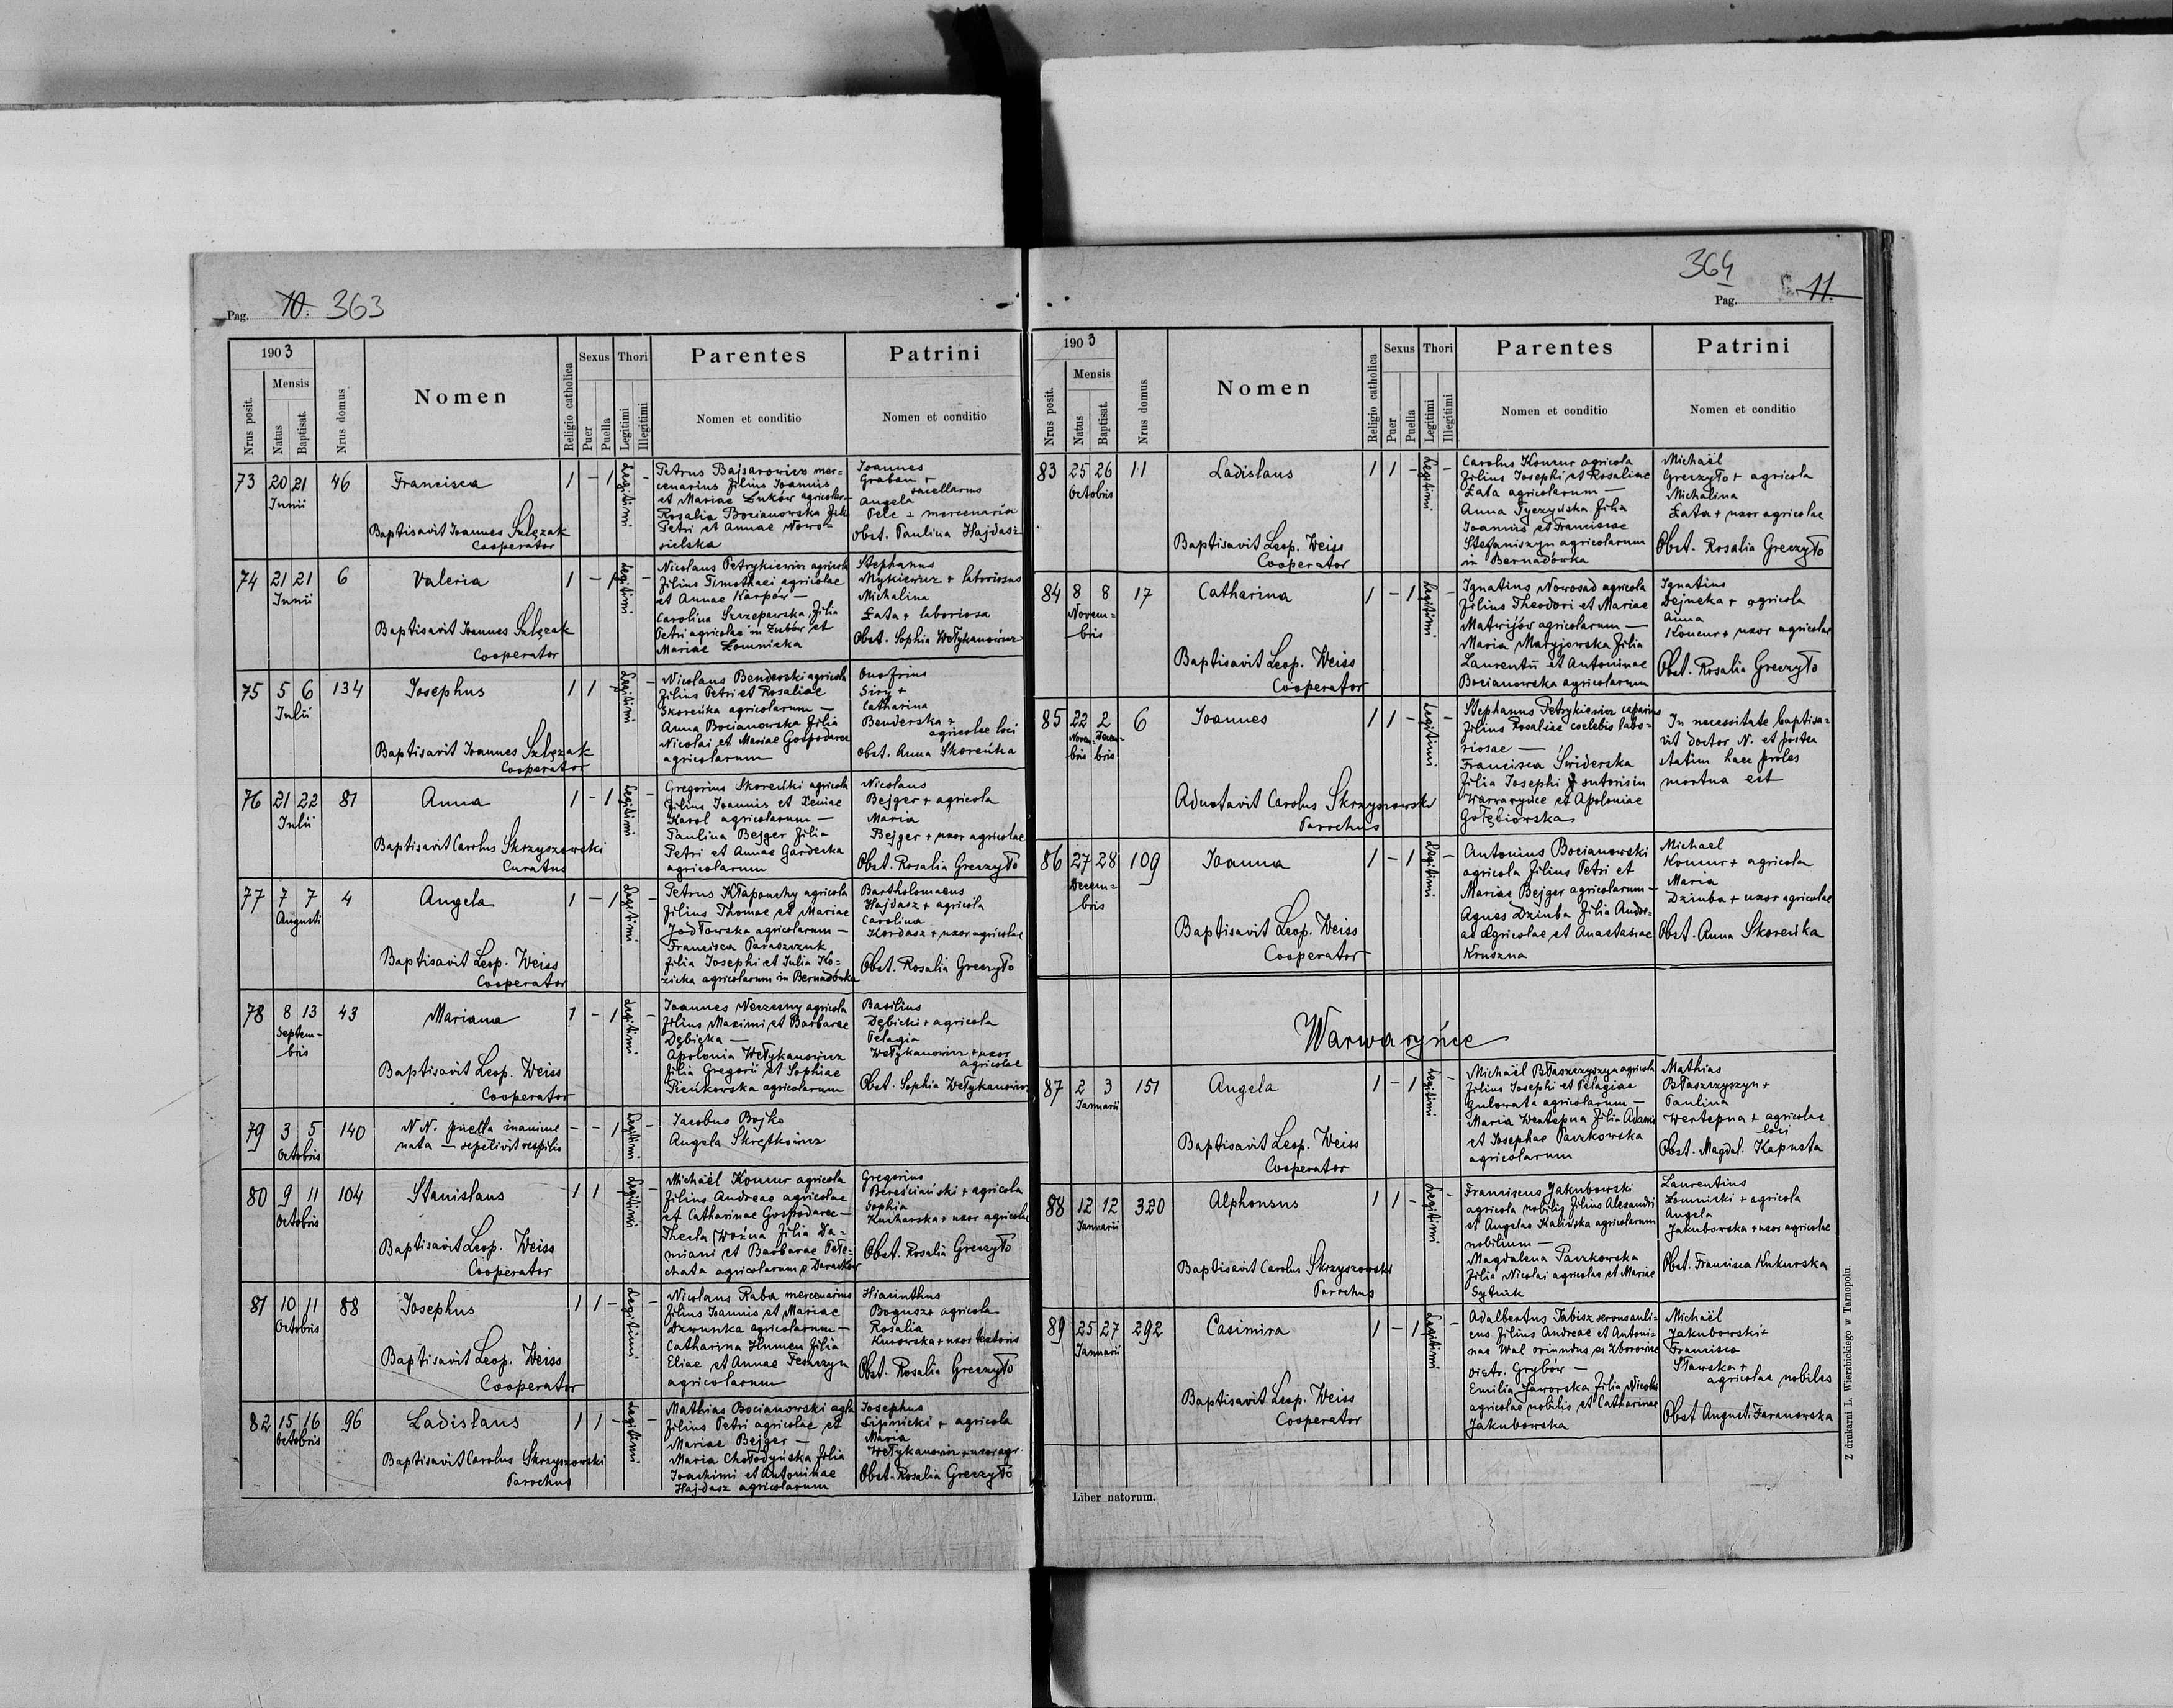 Pag. 10. 363
1903
Mensis
Nrus posit.
Natus
Baptisat.
Nrus domus
Nomen
Religio catholica
Sexus
Puer
Puella
Thori
Legitimi
Illegitimi
Parentes
Nomen et conditio
Patrini
Nomen et conditio
73 20 21 46 Francisca 1 – 1 Legitimi –
Junii
Baptisavit Joannes Szlęzak
Cooperator
Petrus Bajsarowicz mer=
cenarius filius Joannis
et Mariae Łuków agricolar–
Rosalia Bocianowska filia
Petri et Annae Nowo=
sielska
Joannes
Graban +
sacellarius
Angela
Pele = mercenaria
Obst. Paulina Hajdasz
74 21 21 6 Valeria 1 – 1 Legitimi –
Junii
Baptisavit Joannes Szlęzak
Cooperator
Nicolaus Petrykiewicz agricola
filius Timothaei agricolae
et Annae Karpów –
Carolina Szczepańska, filia
Petri agricolae in Zubów et
Mariae Łomnicka
Stephanus
Mykiewicz + laboriosus
Michalina
Łata + laboriosa
Obst. Sophia Wełykanowicz
75 5 6 134 Josephus 1 1 – Legitimi –
Julii
Baptisavit Joannes Szlęzak
Cooperator
Nicolaus Benderski agricola
filius Petri et Rosaliae
Skoreńka agricolarum –
Anna Bocianowska filia
Nicolai et Mariae Gospodarec
agricolarum
Onofrius
Siry +
Catharina
Benderska +
agricolae loci
Obst. Anna Skoreńka
76 21 22 81 Anna 1 – 1 Legitimi –
Julii
Baptisavit Carolus Skrzyszowski
Curatus
Gregorius Skoreńki agricola
filius Joannis et Xeniae
Karol agricolarum –
Paulina Bejger filia
Petri et Annae Gardecka
agricolarum
Nicolaus
Bejger + agricola
Maria
Bejger + uxor agricolae
Obst. Rosalia Greczyło
77 7 7 4 Angela 1 – 1 Legitimi –
Augusti
Baptisavit Leop. Weiss
Cooperator
Petrus Kłapouchy agricola
filius Thomae et Mariae
Jodłowska agricolarum –
Francisca Paraszczuk
filia Josephi et Julia Ko=
zicka agricolarum in Bernadówka
Bartholomaeus
Hajdasz + agricola
Carolina
Kordasz + uxor agricolae
Obst. Rosalia Greczyło
78 8 13 43 Mariana 1 – 1 Legitimi –
Septem=
bris
Baptisavit Leop. Weiss
Cooperator
Joannes Werzesny agricola
filius Maximi et Barbarae
Dębicka –
Apolonia Wełykanowicz
filia Gregorii et Sophiae
Pieńkowska agricolarum
Basilius
Dębicki + agricola
Pelagia
Wełykanowicz + uxor
agricolae
Obst. Sophia Wełykanowicz
79 3 5 140 N N. puella inanime – – 1 Legitimi –
Octobris
nata – sepelivit vespilio
Jacobus Bojko
Angela Skrętkowicz
80 9 11 104 Stanislaus 1 1 – Legitimi –
Octobris
Baptisavit Leop. Weiss
Cooperator
Michaël Koncur agricola
filius Andreae agricolae
et Catharinae Gospodarec –
Thecla Woźna filia Da=
miani et Barbarae Pełe=
chata agricolarum e Darachów
Gregorius
Bereściański + agricola
Sophia
Kucharska + uxor agricolae
Obst. Rosalia Greczyło
81 10 11 88 Josephus 1 1 – Legitimi –
Octobris
Baptisavit Leop. Weiss
Cooperator
Nicolaus Raba mercenarius
filius Joannis et Mariae
Dzwinka agricolarum –
Catharina Humen filia
Eliae et Annae Feszczyn
agricolarum
Hiacinthus
Bogusz + agricola
Rosalia
Kurowska + uxor textoris
Obst. Rosalia Greczyło
82 15 16 96 Ladislaus 1 1 – Legitimi –
Octobris
Baptisavit Carolus Skrzyszowski
Parochus
Mathias Bocianowski agla
filius Petri agricolae et
Mariae Bejger –
Maria Chołodyńska filia
Joachimi et Antoninae
Hajdasz agricolarum
Josephus
Lipnicki + agricola
Maria
Wełykanowicz + uxor agr.
Obst. Rosalia Greczyło
364
Pag. 11.
1903
Mensis
Nrus posit.
Natus
Baptisat.
Nrus domus
Nomen
Religio catholica
Sexus
Puer
Puella
Thori
Legitimi
Illegitimi
Parentes
Nomen et conditio
Patrini
Nomen et conditio
83 25 26 11 Ladislaus 1 1 – Legitimi –
Octobris
Baptisavit Leop. Weiss
Cooperator
Carolus Koncur agricola
filius Josephi et Rosaliae
Łata agricolarum –
Anna Tyczyńska filia
Joannis et Franciscae
Stefaniszyn agricolarum
in Bernadówka
Michaël
Greczyło + agricola
Michalina
Łata + uxor agricolae
Obst. Rosalia Greczyło
84 8 8 17 Catharina 1 – 1 Legitimi –
Novem=
bris
Baptisavit Leop. Weiss
Cooperator
Ignatius Nowosad agricola
filius Theodori et Mariae
Matwijów agricolarum –
Maria Matyjowska filia
Laurentii et Antoninae
Bocianowska agricolarum
Ignatius
Dejneka + agricola
Anna
Koncur + uxor agricolae
Obst. Rosalia Greczyło
85 22 2 6 Joannes 1 1 – Legitimi –
Novem- Decem-
bris bris
Adnotavit Carolus Skrzyszowski
Parochus
Stephanus Petrykiewicz
filius Rosaliae coelebis labo=
riosae –
Francisca Świderska
filia Josephi sutoris in
Warwaryńce et Apoloniae
Gołębiowska
In necessitate baptisa=
vit doctor N. et postea
statim haec proles
mortua est
86 27 28 109 Joanna 1 – 1 Legitimi –
Decem=
bris
Baptisavit Leop. Weiss
Cooperator
Antonius Bocianowski
agricola filius Petri et
Mariae Bejger agricolarum –
Agnes Dziuba filia Andre=
ae agricolae et Anastasiae
Kruszna
Michael
Koncur + agricola
Maria
Dziuba + uxor agricolae
Obst. Anna Skoreńka
Warwaryńce
87 2 3 151 Angela 1 – 1 Legitimi –
Januarii
Baptisavit Leop. Weiss
Cooperator
Michaël Błaszczyszyn agricola
filius Josephi et Pelagiae
Zulowata agricolarum –
Maria Wentepna filia Adami
et Josephae Paczkowska
agricolarum
Mathias
Błaszczyszyn +
Paulina
Wentepna + agricolae
loci
Obst. Magdal. Kapusta
88 12 12 320 Alphonsus 1 1 – Legitimi –
Januarii
Baptisavit Carolus Skrzyszowski
Parochus
Franciscus Jakubowski
agricola nobilis filius Alexandri
et Angelae Kalińska agricolarum
nobilium –
Magdalena Paczkowska
filia Nicolai agricolae et Mariae
Sytnik
Laurentius
Łomnicki + agricola
Angela
Jakubowska + uxor agricolae
Obst. Francisca Kukurska
89 25 27 292 Casimira 1 – 1 Legitimi –
Januarii
Baptisavit Leop. Weiss
Cooperator
Adalbertus Tabisz servus auli=
cus filius Andreae et Antoni=
nae Wal oriundus ex Zborowice
distr. Grybów –
Emilia Jaworska filia Nicolai
agricolae nobilis et Catharinae
Jakubowska
Michaël
Jakubowski +
Francisca
Sławska +
agricolae nobiles
Obst August. Taranowska
Liber natorum.
Z drukarni L. Wierzbickiego w Tarnopolu.